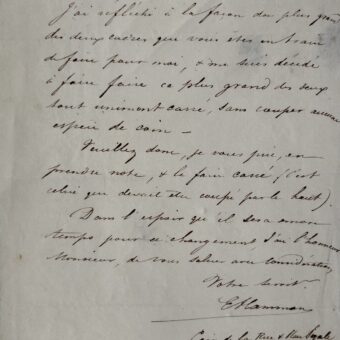 J'ai réfléchi à la façon du plus gran
des deux cadres que vous êtes en train
de faire pour moi, & me suis décidé
à faire faire ce plus grand des deux
tout uniment carré, sans couper aucune
espèce de coin —
Veuillez donc, je vous prie, en
prendre note, & le faire carré, (c'est
celui que devait être coupé par le haut).
Dans l'espoir qu'il sera encore
temps pour ce changement j'ai l'honneur
Monsieur, de vous saluer avec considération
Votre servitr
EHamman
Coin de la Rue & Rue Royale